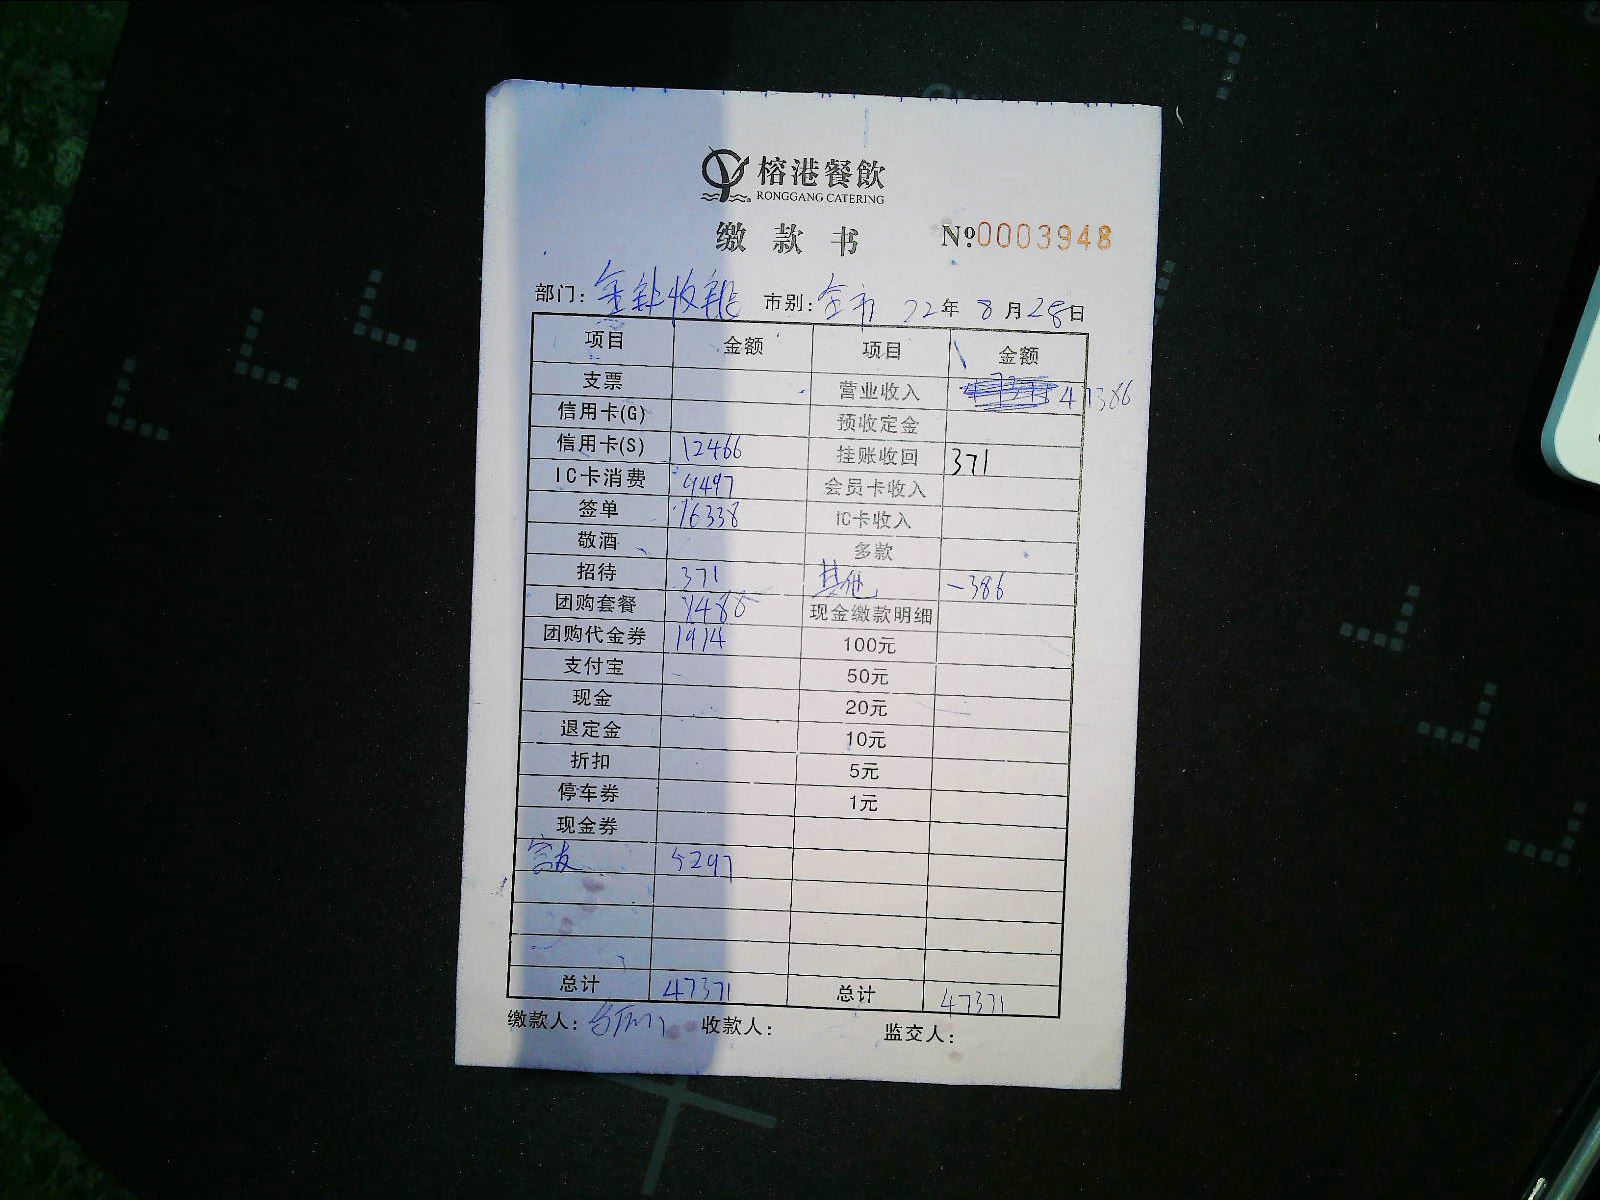 榕港餐飲
RONGGANG CATERING
缴款书 №0003948
部门: 金钻收银 市别: 全市 22年 8月28日
项目 金额 项目 金额
支票 营业收入 47386
信用卡(G) 预收定金
信用卡(S) 12466 挂账收回 371
IC卡消费 9497 会员卡收入
签单 16338 IC卡收入
敬酒 多款
招待 371 其他 -386
团购套餐 1488 现金缴款明细
团购代金券 1914 100元
支付宝 50元
现金 20元
退定金 10元
折扣 5元
停车券 1元
现金券
5297
总计 47371 总计 47371
缴款人: 收款人: 监交人: